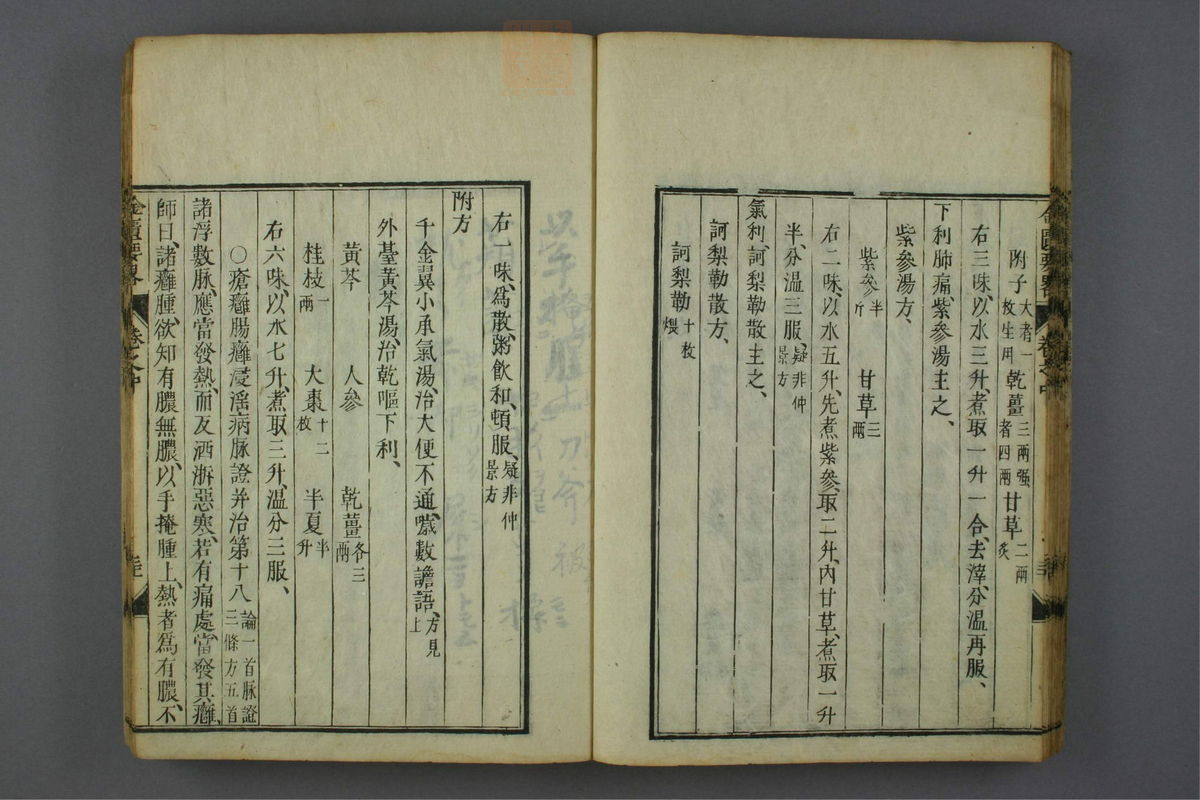 金匱要畧 卷之中
附子大者一枚生用 乾薑三兩强者四兩 甘草二兩炙
右三味、以水三升、煮取一升一合、去滓、分溫再服、
下利肺痛、紫參湯主之、
紫參湯方、
紫參半斤 甘草三兩
右二味、以水五升、先煮紫參、取二升、內甘草、煮取一升
半、分溫三服、疑非仲景方
氣利、訶梨勒散主之、
訶梨勒散方、
訶梨勒十枚煨
右一味、爲散、粥飮和、頓服、疑非仲景方
附方
千金翼小承氣湯、治大便不通、噦數譫語、方見上
外臺黃芩湯、治乾嘔下利、
黃芩 人參 乾薑各三兩
桂枝一兩 大棗十二枚 半夏半升
右六味、以水七升、煮取三升、溫分三服、
○瘡癰腸癰浸淫病脉證幷治第十八論一首脉證三條方五首
諸浮數脉、應當發熱、而反洒淅惡寒、若有痛處、當發其癰、
師曰、諸癰腫、欲知有膿無膿、以手掩腫上、熱者爲有膿、不
金匱要畧 卷之中